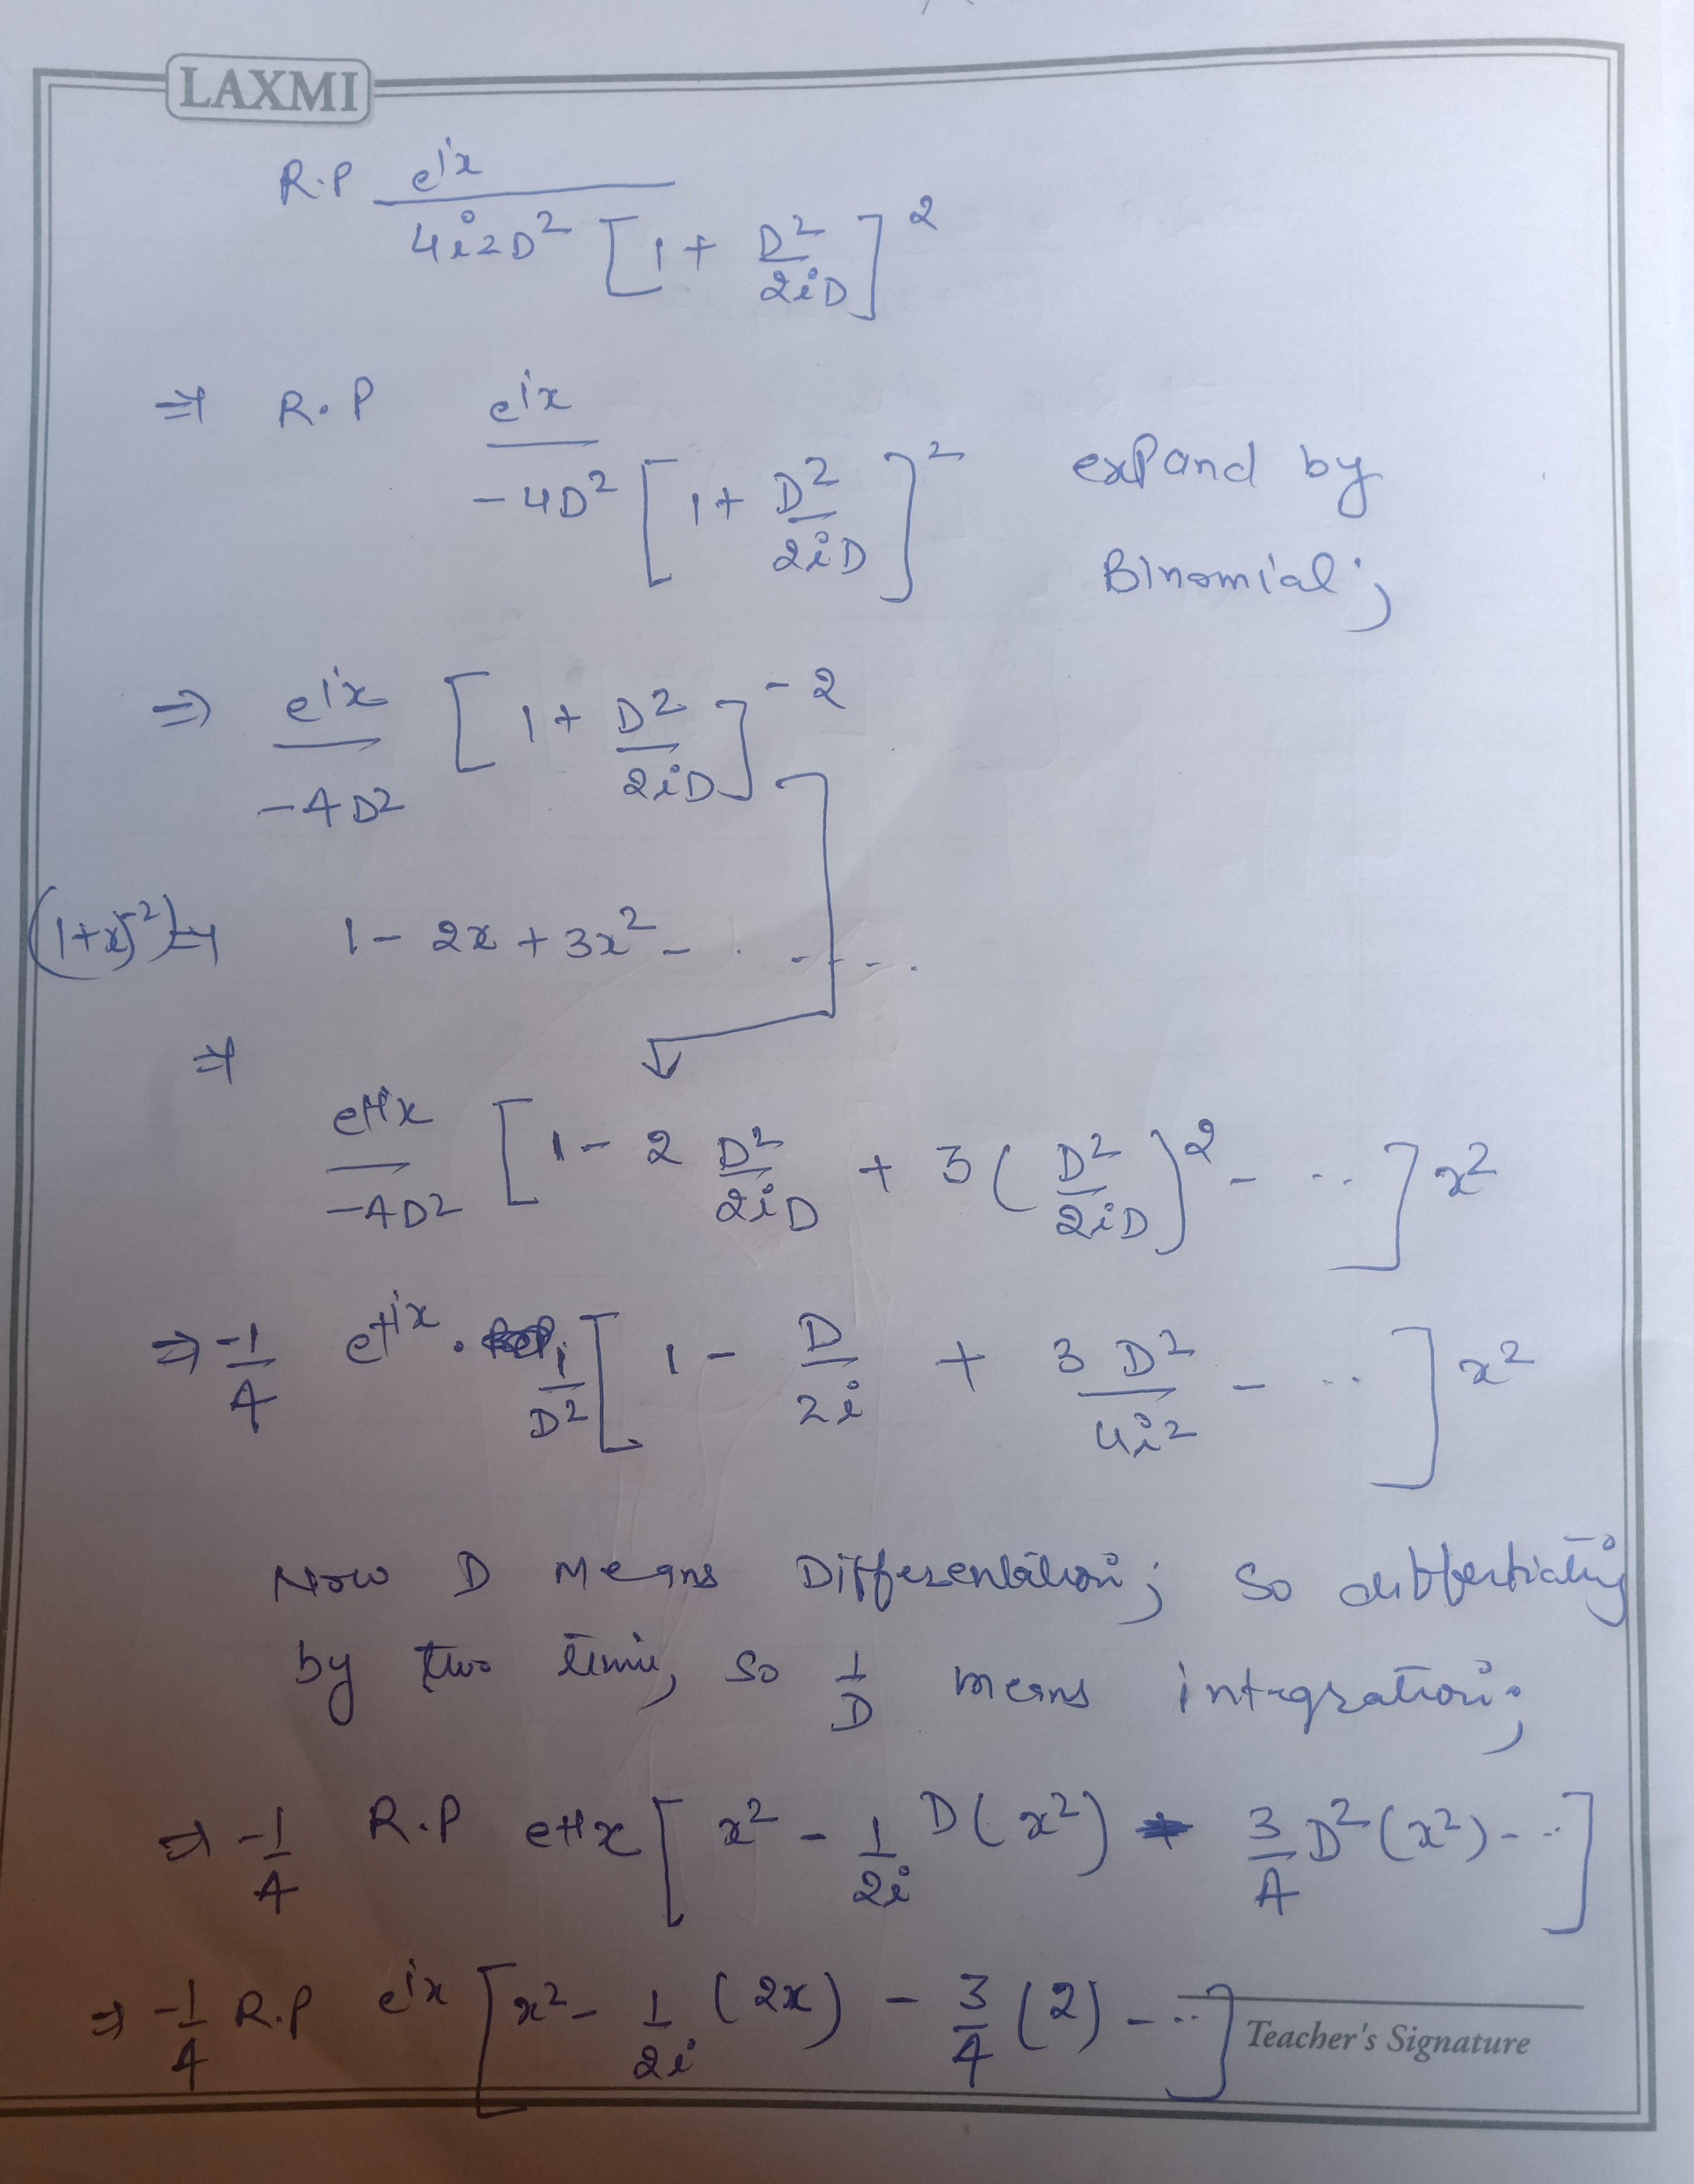 LAXMI
R.P e^{ix} / 4i^2D^2 [1 + D^2/2iD]^2
⇒ R.P e^{ix} / -4D^2 [1 + D^2/2iD]^2 expand by
Binomial;
⇒ e^{ix} / -4D^2 [1 + D^2/2iD]^{-2}
(1+x)^{-2} ⇒ 1 - 2x + 3x^2 - .....
⇒
e^{+ix} / -4D^2 [1 - 2 D^2/2iD + 3 (D^2/2iD)^2 - ...] x^2
⇒ -1/4 e^{+ix} . 1/D^2 [1 - D/2i + 3D^2/4i^2 - ...] x^2
Now D means Differentation; so
by two time, so 1/D means integration;
⇒ -1/4 R.P e^{+ix} [x^2 - 1/2i D(x^2) 3/4 D^2(x^2) - ...]
⇒ -1/4 R.P e^{ix} [x^2 - 1/2i (2x) - 3/4 (2) - ...]
Teacher's Signature